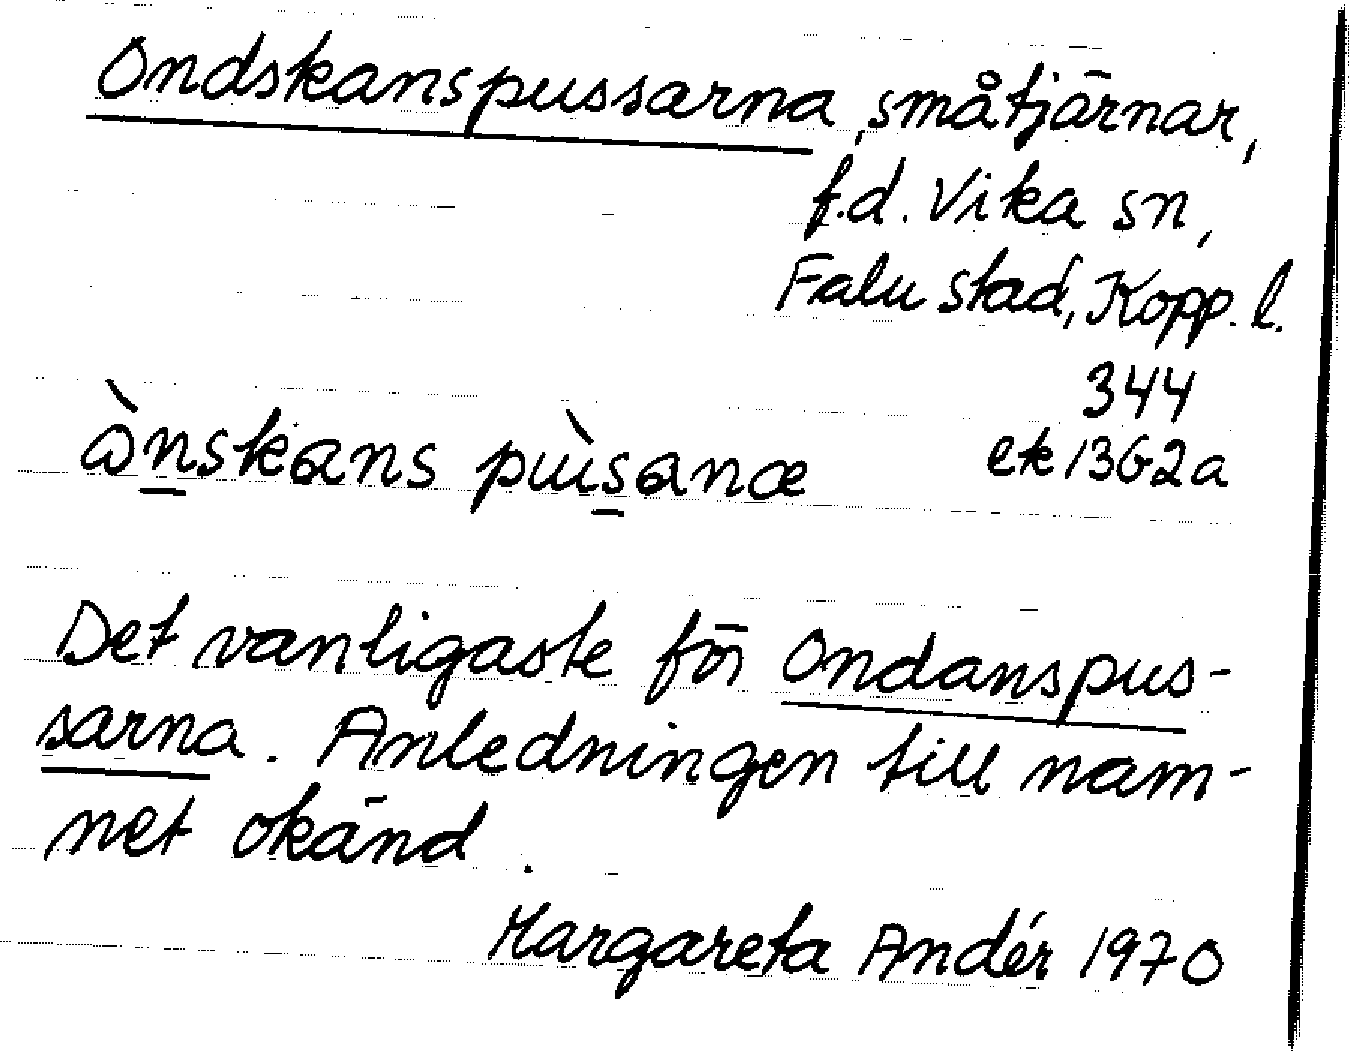 Ondskanspussarna, småtjärnar,
f.d. Vika sn,
Falu stad, Kopp. l.
344
ek 13G2a
ànskans pùsanæ
Det vanligaste för Ondanspus-
sarna. Anledningen till nam-
net okänd.
Margareta Andér 1970